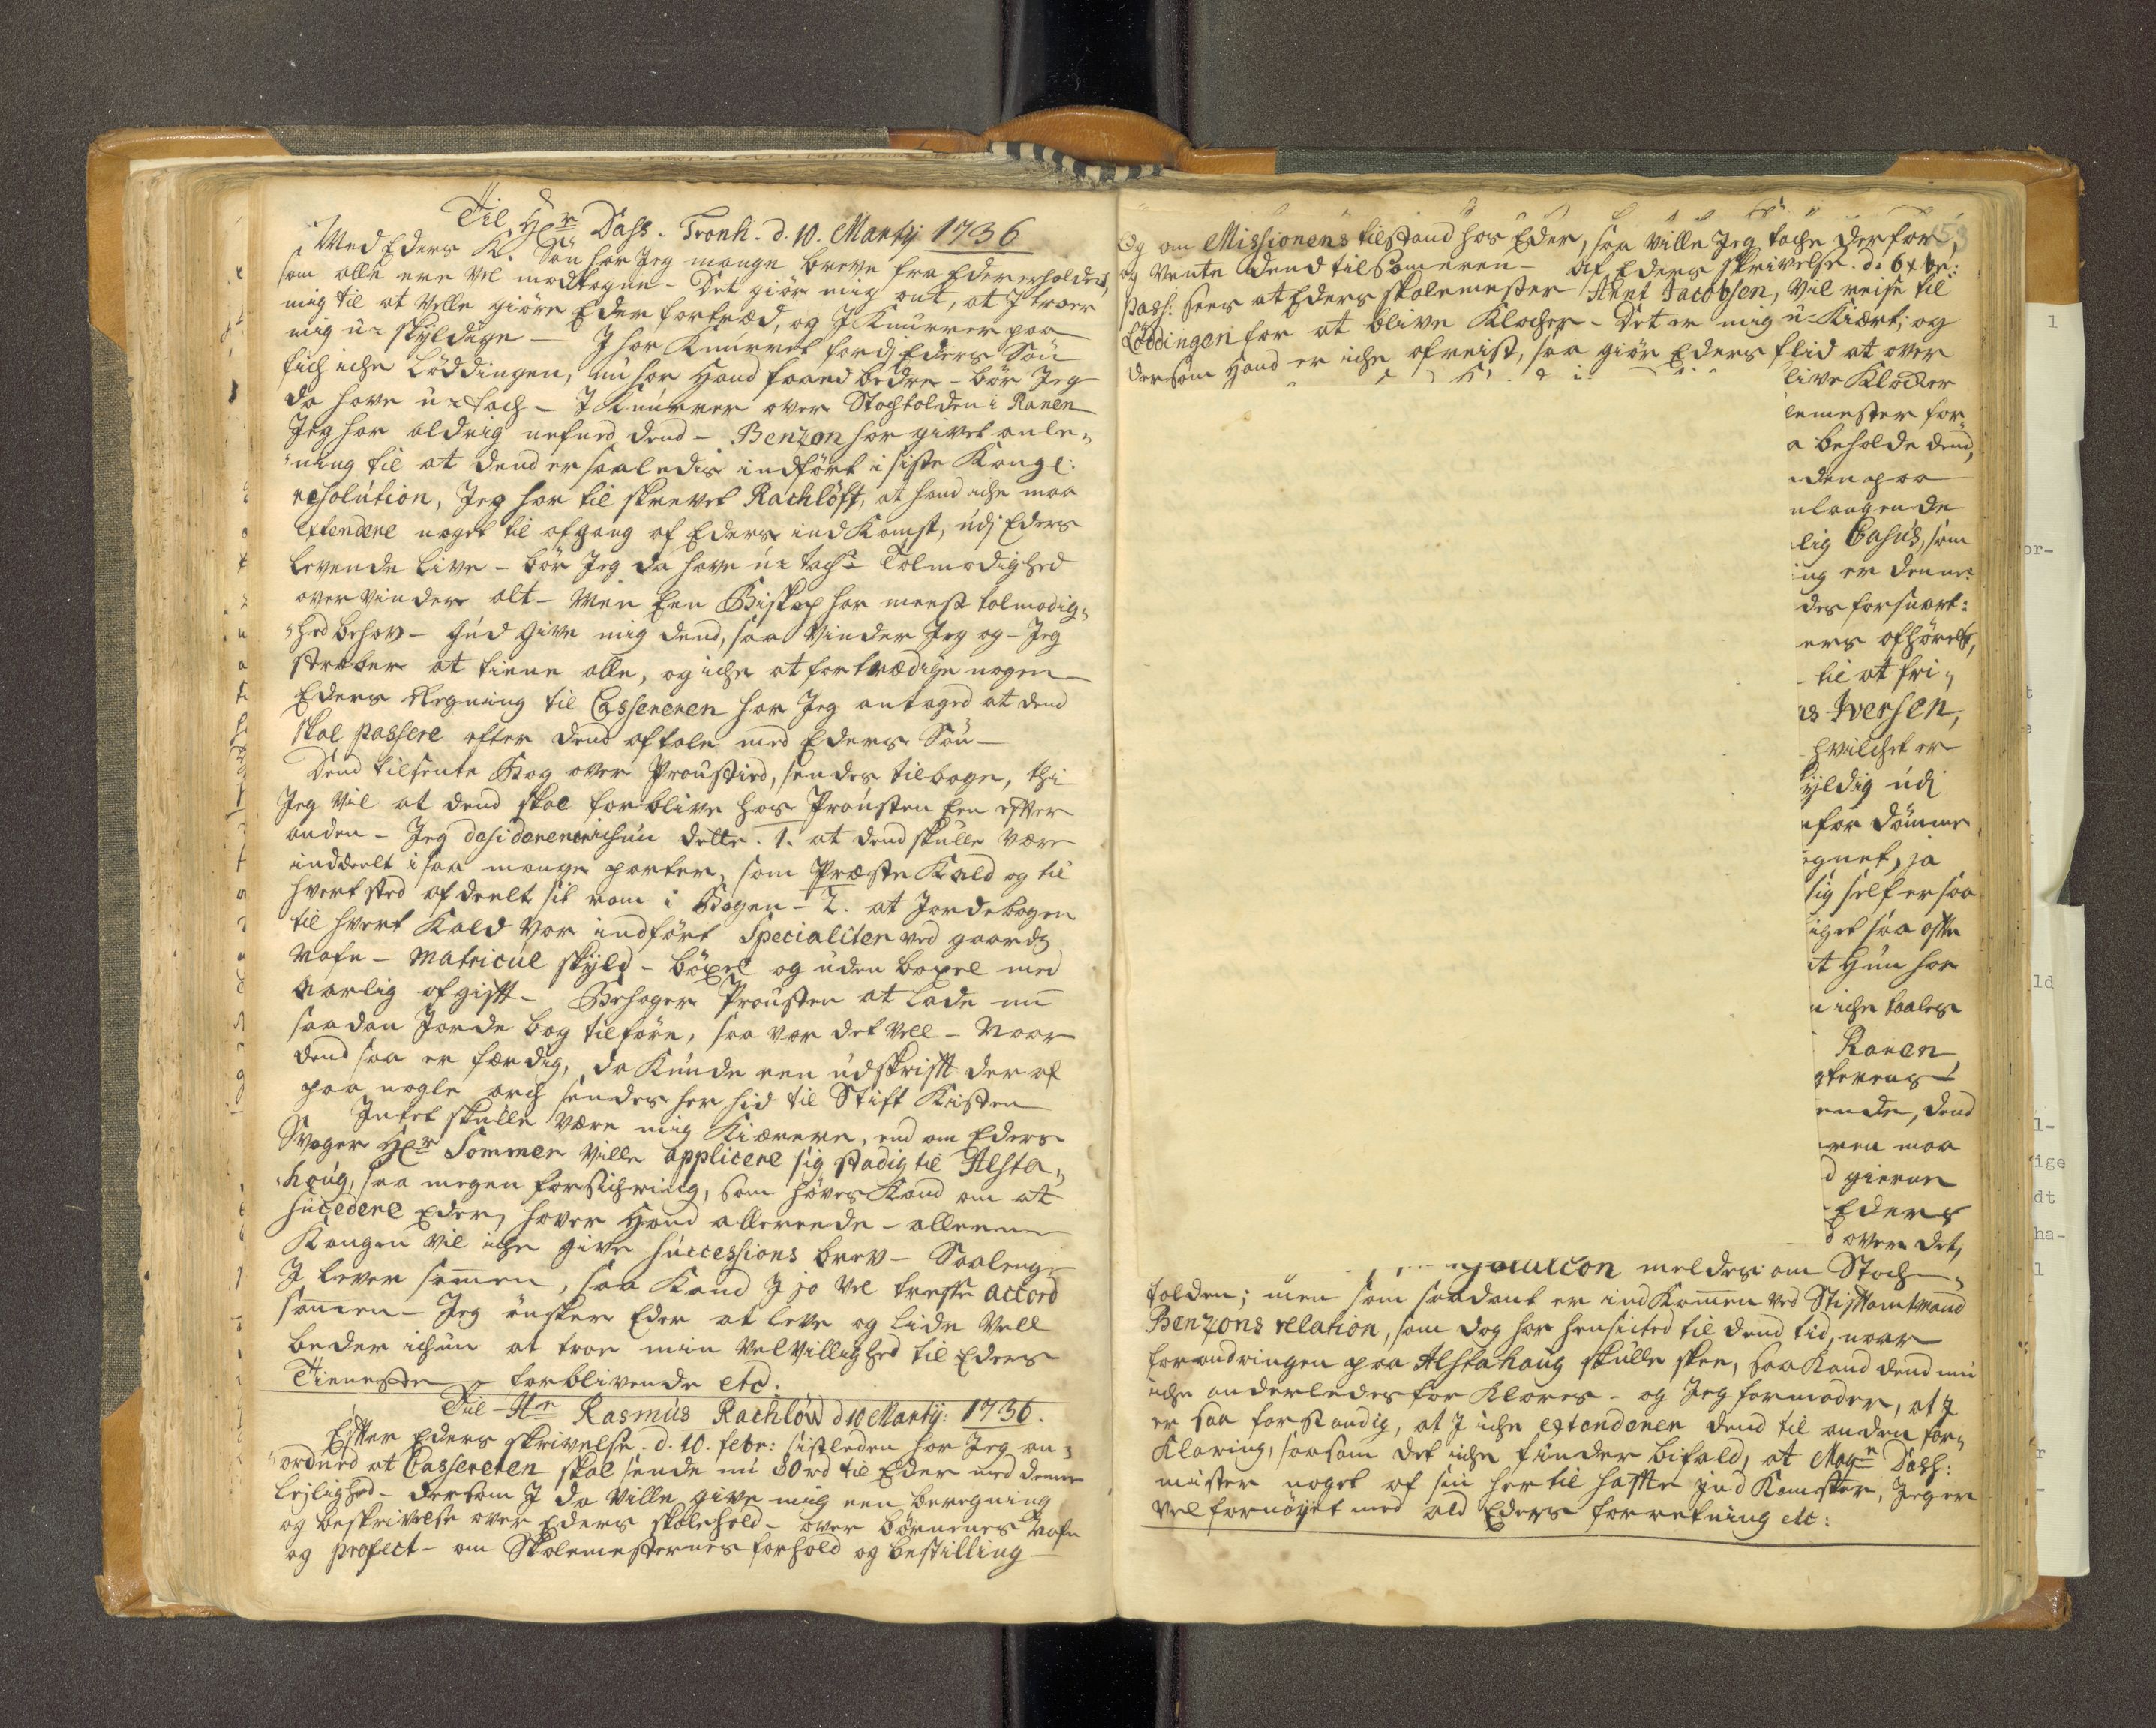 Til Hr Dass. Tronh. d. 10. Martij 1736
Med Eders K. Søn har Jeg mange breve fra Eder erholdet,
som alle ere vel modtagne - Det giør mig ont, at I troer
mig til at ville giøre Eder fortræd, og I Knurrer paa
mig u-skyldige - I har Knurret fordj Eders Søn
fich iche Löddingen, nu har Hand faaed bedre - bør Jeg
da have u-tach - I Knurrer over Stochtolden i Ranen
Jeg har aldrig nefned dend - Benzon har givet anle-
ning til at dend er saaledis indført i siste Kongl:
resolution, Jeg har til skrevet Rachlöff, at hand iche maa
extendere noget til afgang af Eders ind Komst, udj Eders
levende Live - bør Jeg da have u-tach? Tolmodighed
over vinder alt - Men Een Biskop har meest tolmodig-
hed behov - Gud give mig dend, saa vinder Jeg og - Jeg
stræber at tiene alle, og iche at fortrædige nogen
Eders Regning til Casseneren har Jeg antaged at dend
skal passere efter dend aftale med Eders Søn -
Dend tilsente Bog over Proustied, sendes tilbage, thi
Jeg vil at dend skal forblive hos Prousten Een efter
anden - Jeg desiderere ichun dette. 1. at dend skulle være
inddeelt i saa mange parter, som Præste Kald og til
hvert sted afdeelt sit rom i Bogen - 2. at Jordebogen
til hvert Kald var indført Specialiter ved gaards
Nafn - Matricul skyld - böxel og uden boxel med
Aarlig afgifft - Behager Prousten at lade nu
saadan Jorde bog tilføre, saa var det vell - Naar
dend saa er færdig, da Kunde een udskrifft der af
paa nogle arch sendes her hid til Stift Kisten
Intet skulle være mig Kiærere, end om Eders
Svoger Hr Sommer ville applicere sig stadig til Alsta-
houg, saa megen forsichring, som haves Kand om at
succedere Eder, haver Hand allereede - allene
Kongen vil iche give successions brev - Saalenge
I lever sammen, saa Kand I jo vel treffe accord
sammen - Jeg ønsker Eder at leve og lide vell
beder ichun at troe min Velvillighed til Eders
Tieneste forblivende etc:
Til Hr Rasmus Rachlöw d 10 Martij: 1736.
Effter Eders skrivelse. d. 10. febr: sistleden har Jeg an-
ordned at Casseneren skal sende nu 80 rd til Eder med denne
lejlighed - dersom I da ville give mig een beregning
og beskrivelse over Eders skolehold - over børnenes Nafn
og profect - om Skolemesternes forhold og bestilling -
Og om Missionens tilstand hos Eder, saa ville Jeg tache derfor,
og vente dend til Sommeren - Af Eders skrivelse. d. 6 xbr:
pass: sees at Eders skolemester Arnt Jacobsen, vil reise til
Löddingen for at blive Klocher - Det er mig u-Kiært; og
dersom Hand er iche afreist, saa giør Eders flid at over
live Klocker
lemester for
a beholde dend,
nden paa
nlangende
lig Casus, som
ing er denne:
des forsvart:
ers afhørelse,
til at fri-
as Iversen,
hvilchet er
yldig udj
fordømme
egnet, ja
sig self er saa
iget saa ofte
at Hun har
iche taales
Ranen
ende, dend
ren maa
d gierne
Eders
d over det,
meldes om Stoch-
tolden; men som saadant er ind Kommen ved Stifftamtmand
Benzons relation, som dog har hensicted til dend tid, naar
forandringen paa Alstahaug skulle skee, saa Kand dend nu
iche anderledes for Klares - og Jeg formoder, at I
er saa forstandig, at I iche extenderer dend til anden for-
Klaring, saasom det iche finder bifald, at Magr Dass:
mister noget af sin her til haffte ind Komster, Jeg er
vel fornøyet med ald Eders forretning etc: